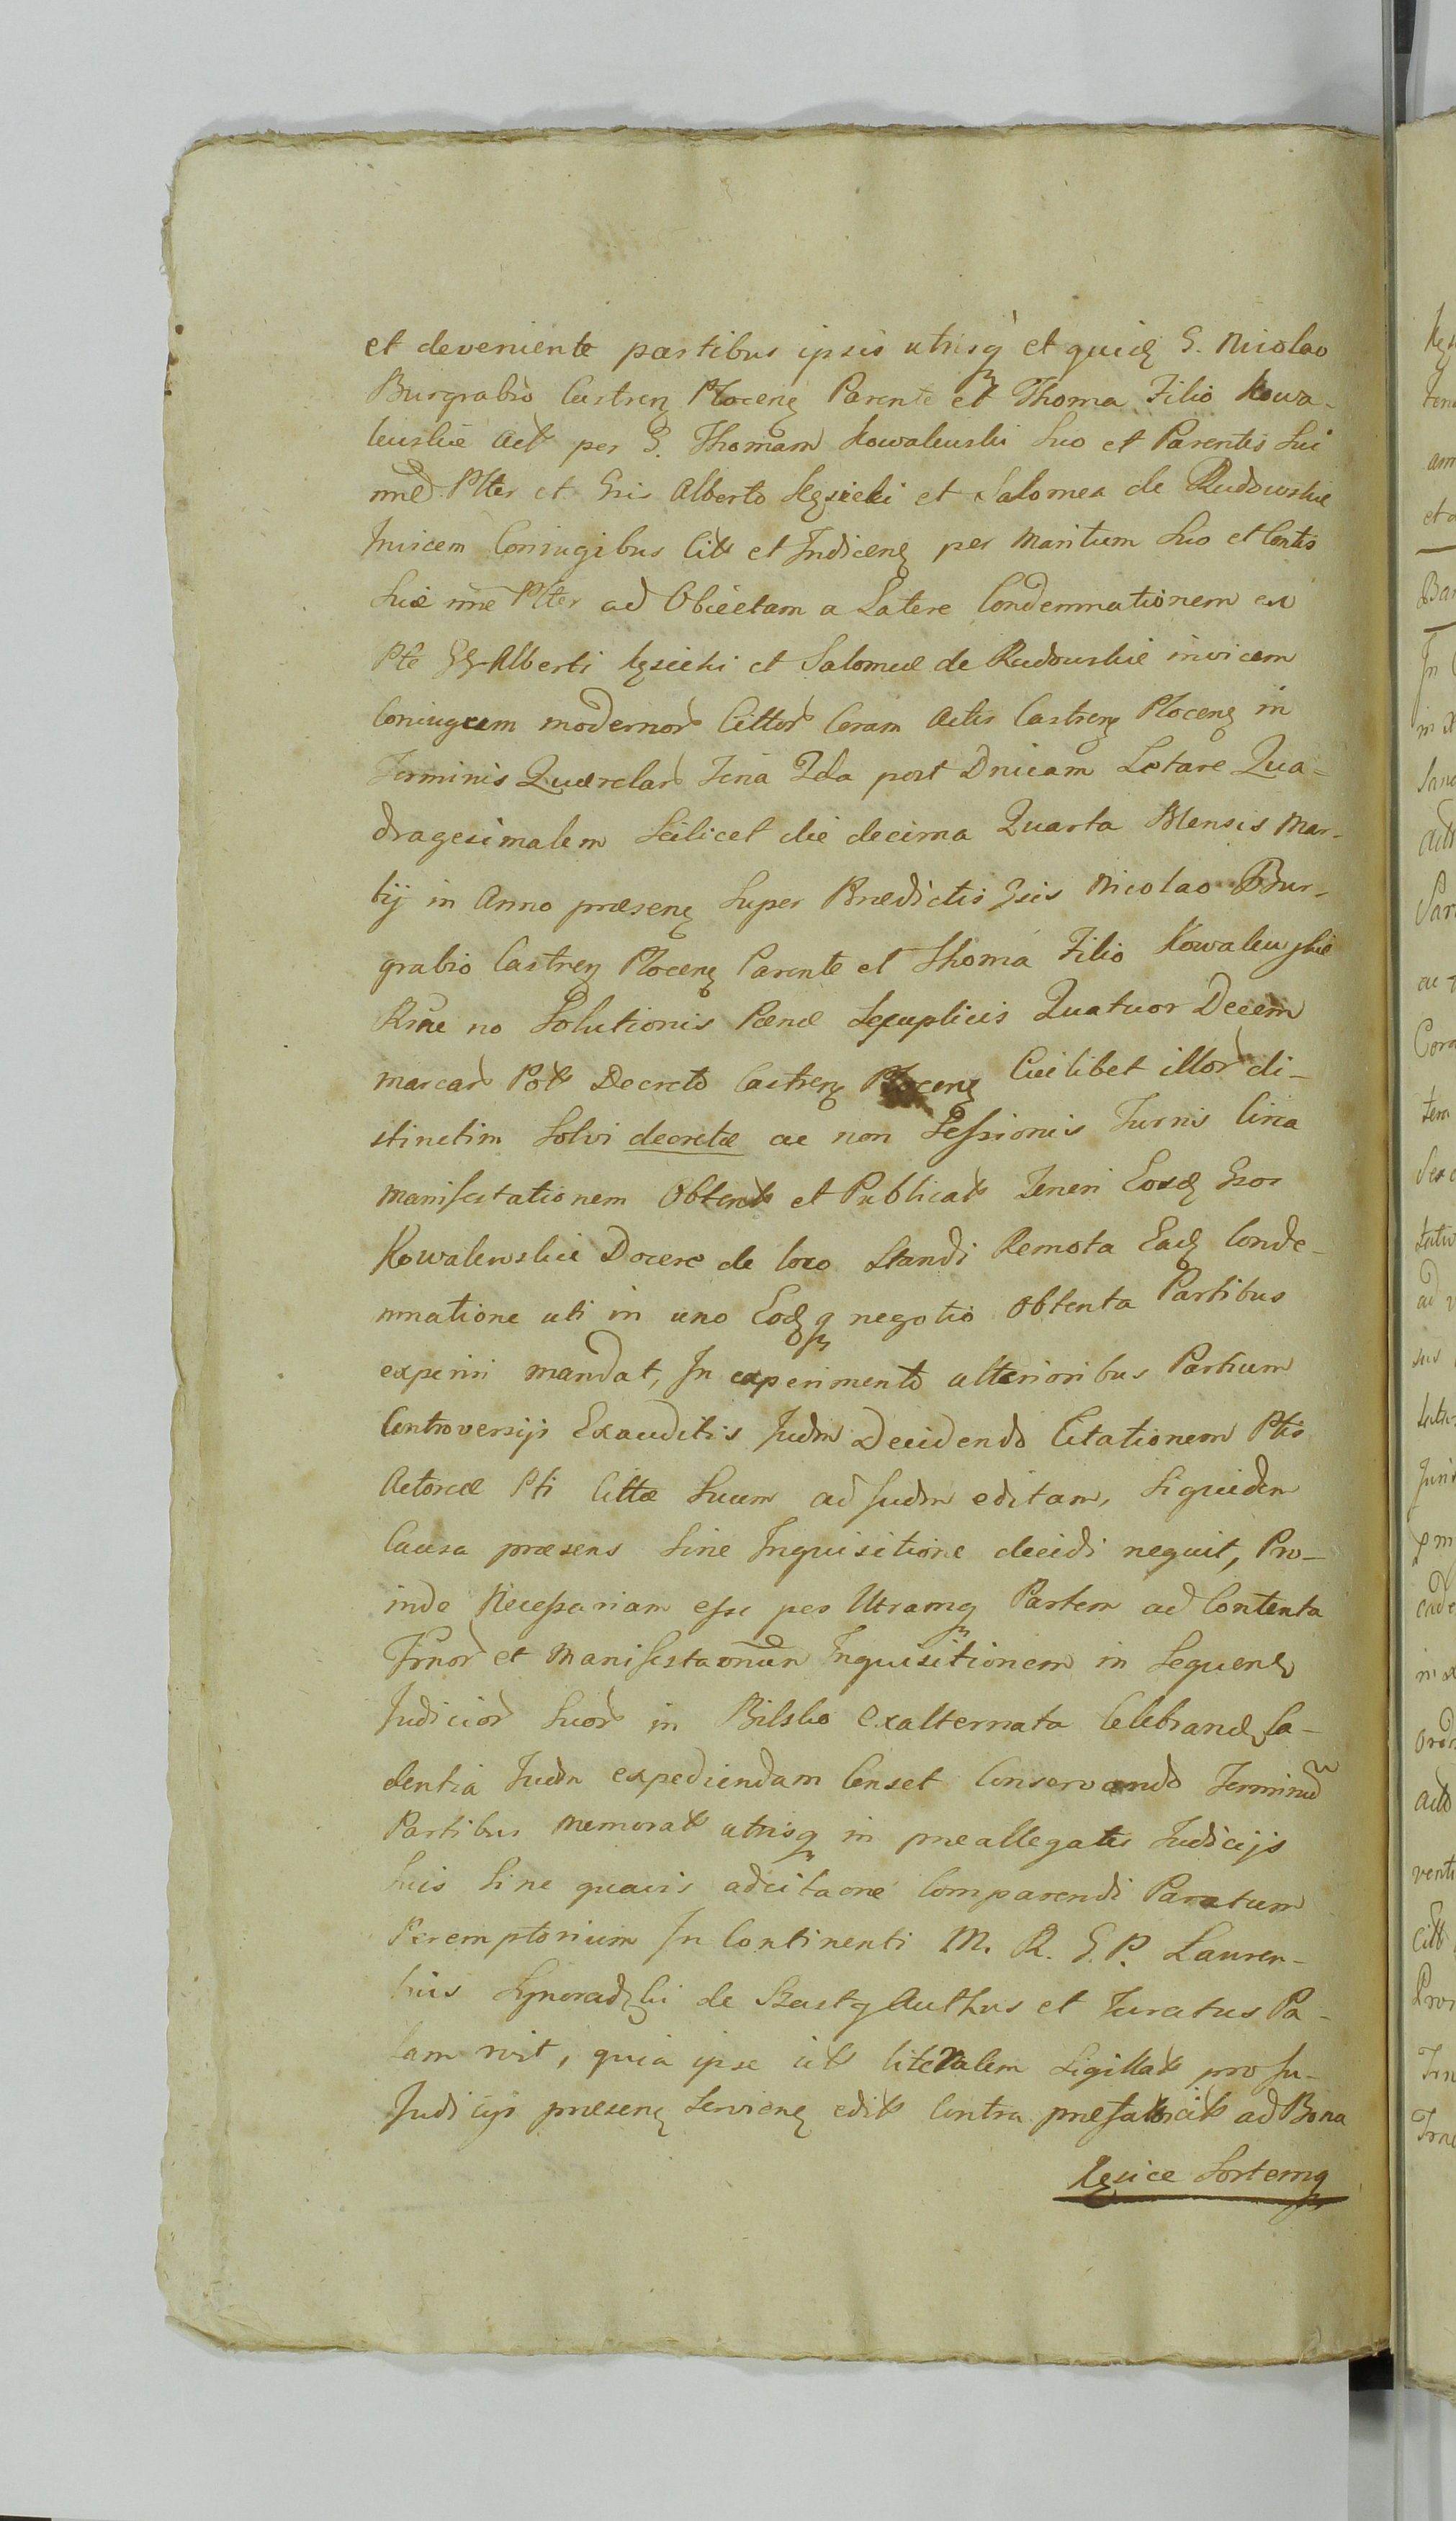 et deveniente partibus ipsis utrisq et quidę G. Nicolao
Burgrabio Castreń Płoceń Parente et Thoma Filio Kowa-
lewskie Act per G. Thomam Kowalewski Suo et Parentis Sui
nne Plter et Gsis Alberto Kęsicki et Salomea de Rudowskie
Invicem Coniugibus Cit et Indiceń per Maritum Suo et Contis
Suæ nne Plter ad Obiectam a Latere Condemnationem ex
Pte GG Alberti Kęsicki et Salomeæ de Rudowskie invicem
Coniugum modernor Cittor Coram Actis Castreń Płoceń in
Terminis Querelar Feria 2da post Dnicam Letare Qua-
dragesimalem Scilicet die decima Quarta Mensis Mar-
tij in Anno præseń Super Prædictis Gsis Nicolao Bur-
grabio Castreń Płoceń Parente et Thoma Filio Kowalewskie
Rne no Solutionis Pænæ Sexuplicis Quatuor Decem
marcar Pol Decreto Castreń Płoceń Cuilibet illor di-
stinctim Solvi decretæ ac non Sessionis Turris Circa
Manifestationem Obtent et Publicat Teneri Eosdę Gsos
Kowalewskie Docere de loco Standi Remota Eadę Conde-
mnatione uti in uno Eodęq negotio obtenta Partibus
experiri mandat, In experimento ulterioribus Partium
Controversijs Exauditis Judm Decidendo Citationem Ptis
Actoreæ Pti Cittæ Suum ad Judm editam, Siquidem
Causa præsens Sine Inquisitione decidi nequit, Pro-
inde Necessariam esse per Utramq Partem ad Contenta
Trnor et Manifestaonum Inquisitionem in Sequenę
Judicior Suor in Bilsko exalternata Celebrandę Ca-
dentia Judm expediendam Censet Conservando Terminu
Partibus memorat utrisq in præallegatis Judicijs
Suis Sine quavis adcitaone Comparendi Paratum
Peremptorium In Continenti M. R. G. P. Lauren-
tius Synoradzki de Szastq Authus et Juratus Pa-
lam rvit, quia ipse cit literalem Sigillat pro Ju-
Judicijs præseń Servień edit Contra præfat cit ad Bona
Kęsice Sortemq